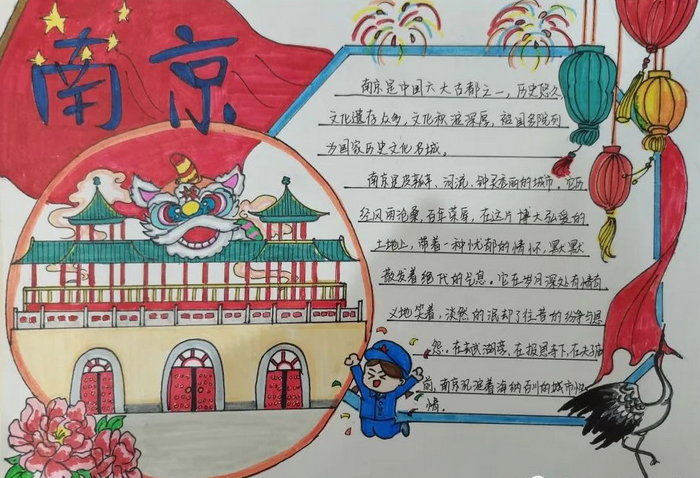 南京
南京是中国六大古都之一，历史悠久，
文化遗存众多，文化积淀深厚，被国务院列
为国家历史文化名城。
南京是座敦厚、河流、钟灵秀丽的城市。它历
经风雨沧桑，百年荣辱，在这片博大弘爱的
土地上，带着一种忧郁的情怀，默默
散发着绝代的气息。它在岁月深处有情有
义地笑着，淡然的泯却了往昔的纷争与恩
怨。在玄武湖旁，在报恩寺下，在夫子庙
前，南京沉淀着海纳百川的城市性
情。